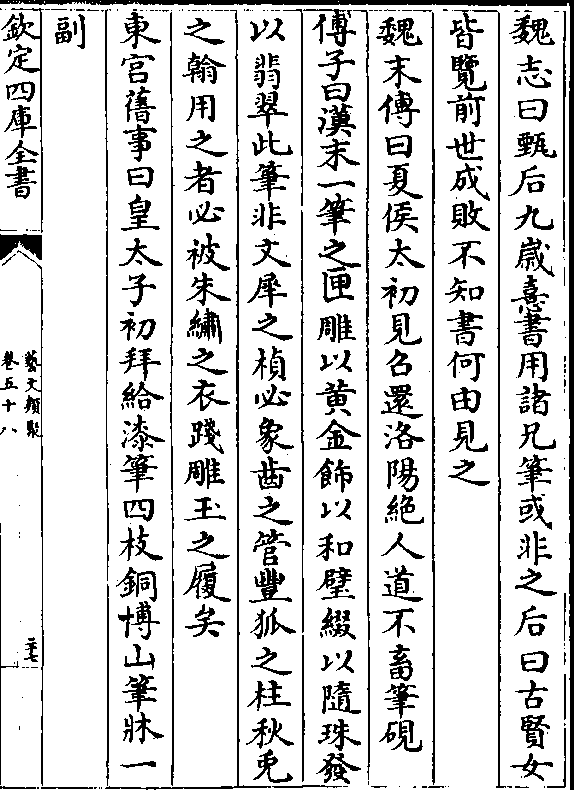 魏志曰甄后九歲憙書用諸兄筆或非之后曰古賢女
皆覽前世成敗不知書何由見之
魏末傅曰夏侯太初見召還洛陽絶人道不畜筆硯
傅子曰漢末一筆之匣雕以黄金飾以和璧綴以隨珠發
以翡翠此筆非文犀之楨必象齒之管豐狐之柱秋兎
之翰用之者必被朱繡之衣踐雕玉之履矣
東宫舊事曰皇太子初拜給漆筆四枝銅博山筆牀一
副
欽定四庫全書
藝文類聚
卷五十八
二十七